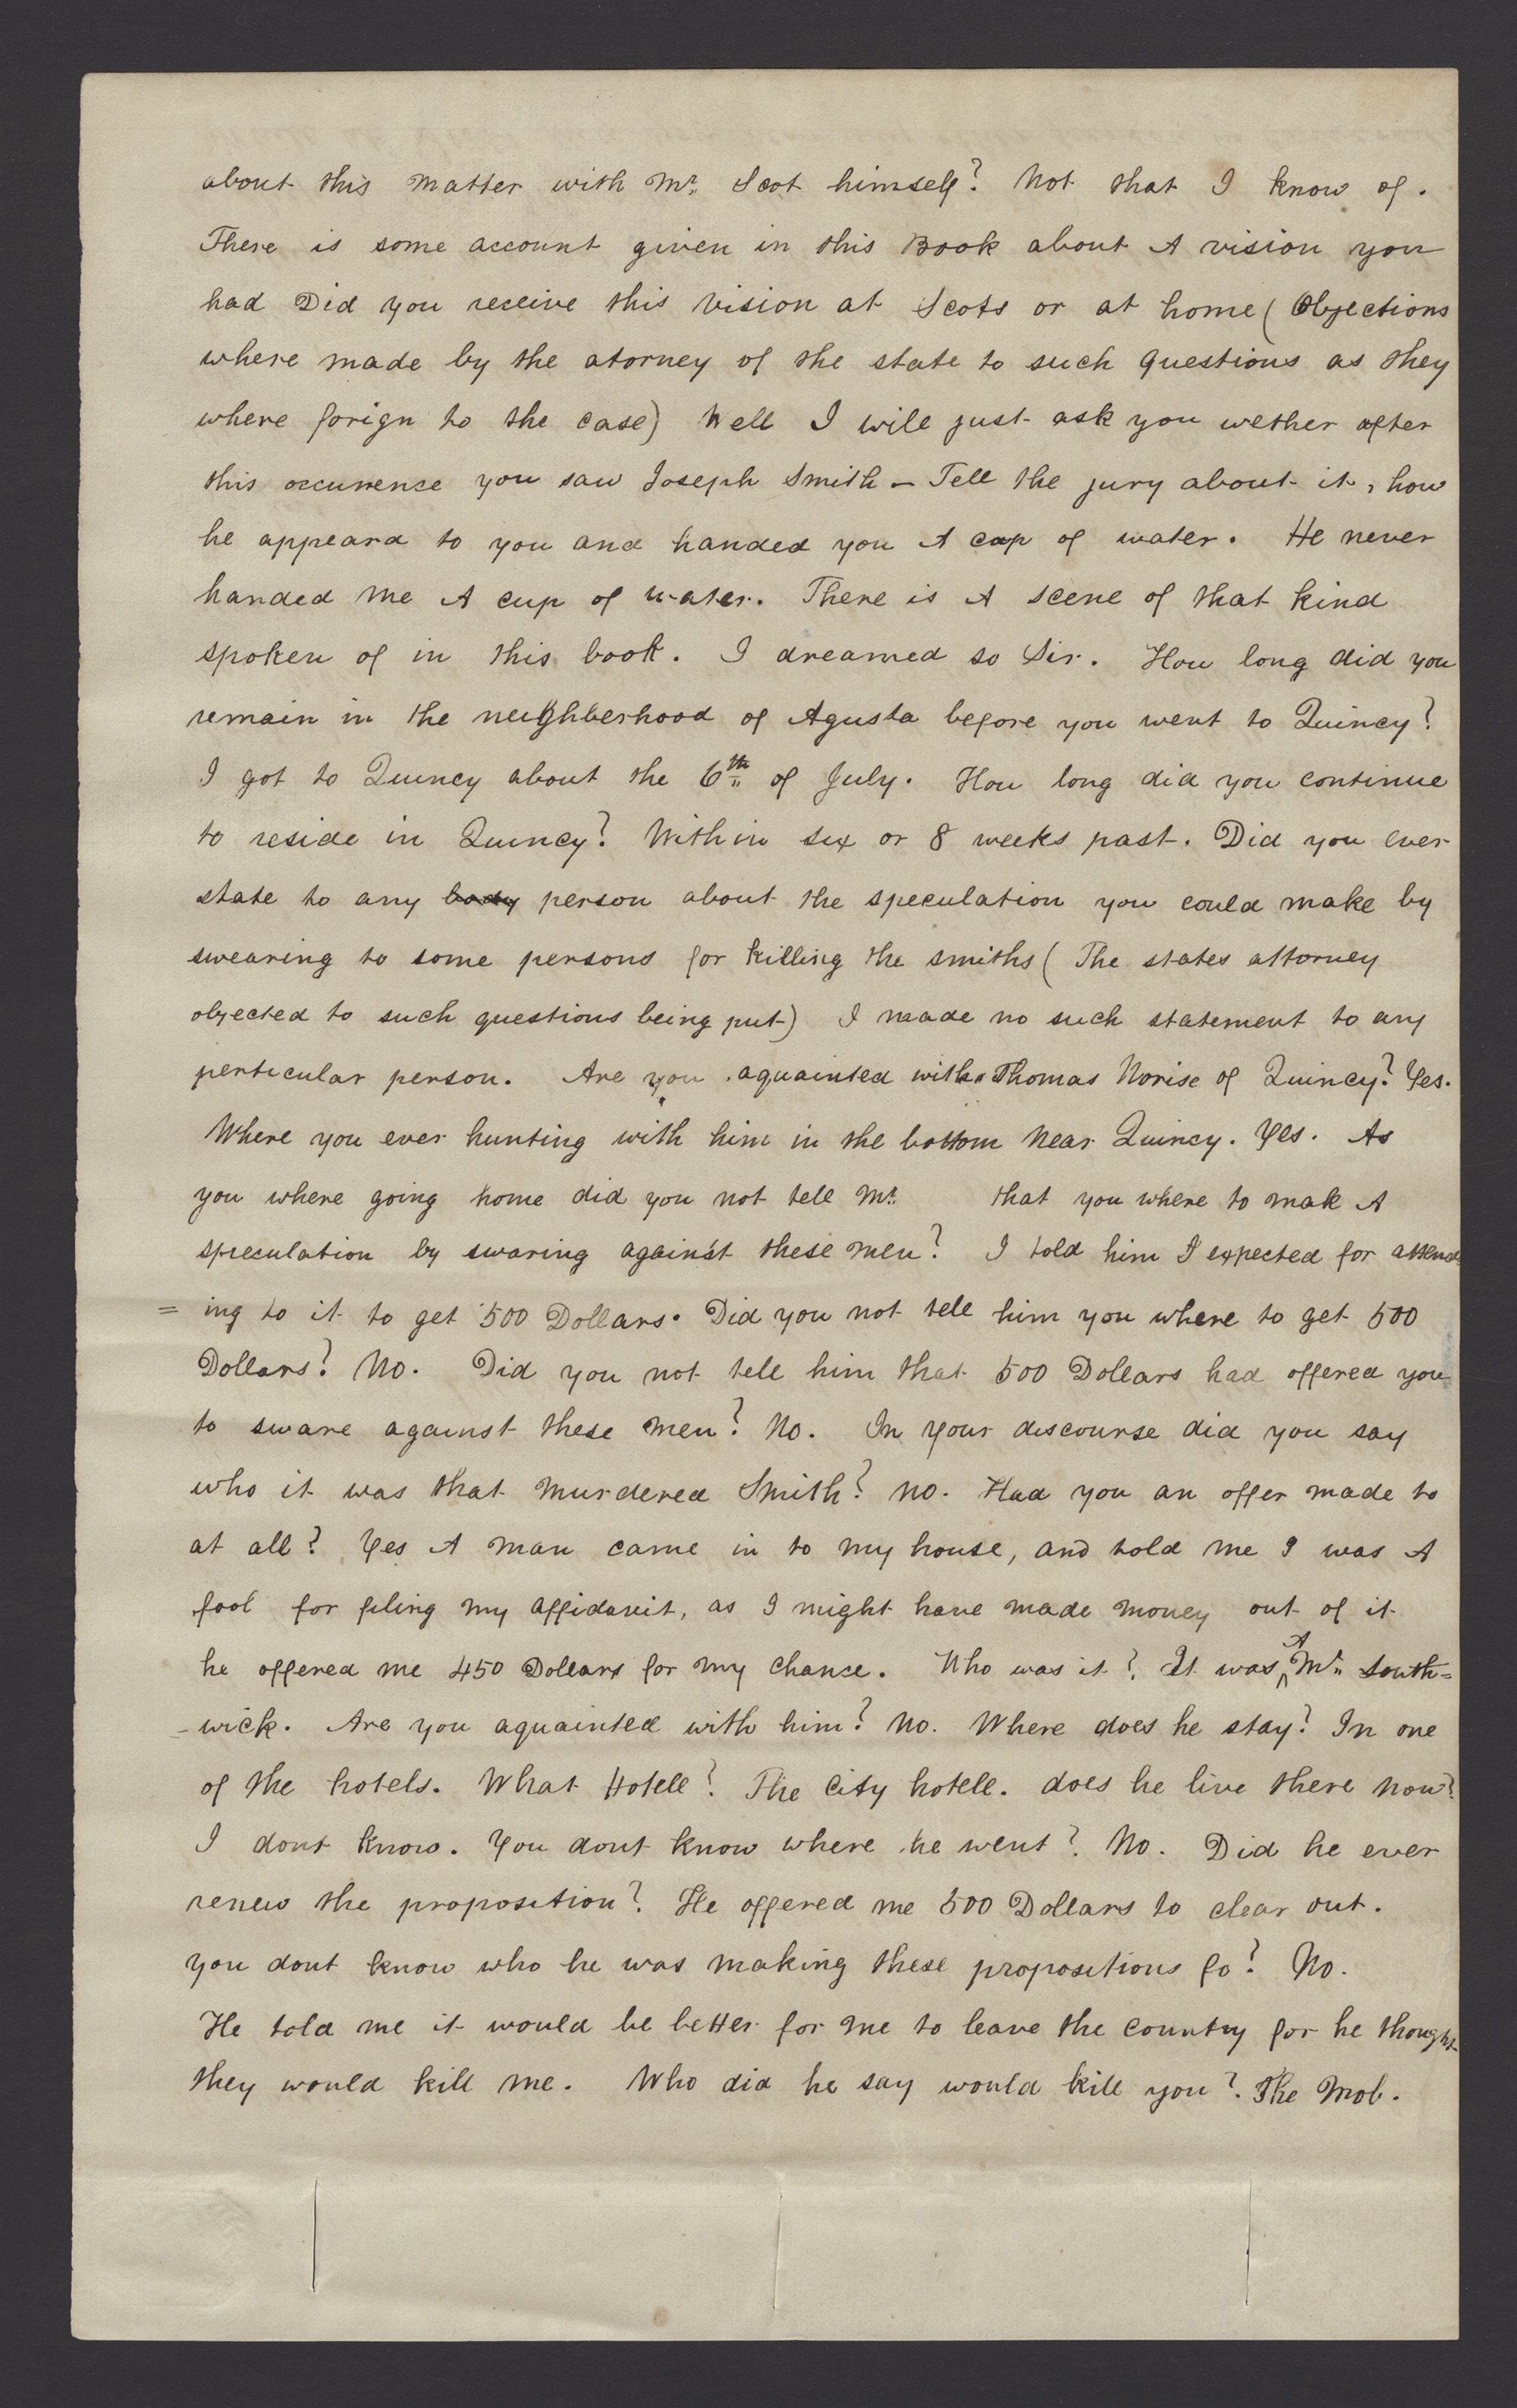 about this matter with Mr. Scot himself? Not that I know of.
There is some account given in this Book about A vision you
had Did you receive this vision at Scots or at home (Objections
where made by the atorney of the state to such questions as they
where forign to the case) Well I will just ask you wether after
this occurrence you saw Joseph Smith – Tell the jury about it, how
he appeard to you and handed you A cup of water. He never
handed me A cup of water. There is A scene of that kind
spoken of in this book. I dreamed so Sir. How long did you
remain in the neighberhood of Agusta before you went to Quincy?
I got to Quincy about the 6th of July. How long did you continue
to reside in Quincy? Within six or 8 weeks past. Did you ever
state to any body person about the speculation you could make by
swearing to some persons for killing the smiths (The states attorney
objected to such questions being put) I made no such statement to any
perticular person. Are you aquainted with Thomas Norise of Quincy? Yes.
Where you ever hunting with him in the bottom near Quincy. Yes. As
you where going home did you not tell Mr. that you where to mak A
speculation by swaring against these men? I told him I expected for attend
= ing to it to get 500 Dollars. Did you not tell him you where to get 500
Dollars? No. Did you not tell him that 500 Dollars had offered you
to sware against these men? No. In your discourse did you say
who it was that murdered Smith? no. Had you an offer made to
at all? Yes A man came in to my house, and told me I was A
fool for filing my affidavit, as I might have made money out of it
he offered me 450 Dollars for my chance. Who was it? It was A Mr. South=
-wick. Are you aquainted with him? no. Where does he stay? In one
of the hotels. What Hotell? The City hotell. does he live there now?
I dont know. You dont know where he went? No. Did he ever
renew the proposition? He offered me 500 Dollars to clear out.
you dont know who he was making these propositions fo? No.
He told me it would be better for me to leave the country for he thought
they would kill me. Who did he say would kill you? The Mob.